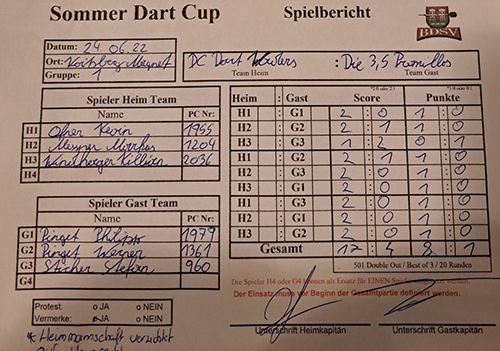 Sommer Dart Cup
Spielbericht
BDSV
Datum: 24.06.22
Ort: Voitsberg Magnet
Gruppe: 1
DC Dart : Die 3,5 Promillos
Team Heim Team Gast
Spieler Heim Team
Name PC Nr:
H1 Ofner Kevin 1955
H2 Messner Markus 1204
H3 Killian 2036
H4
Spieler Gast Team
Name PC Nr:
G1 Pirget Philipp 1979
G2 Pirget Werner 1361
G3 Sticher Stefan 960
G4
Heim : Gast Score Punkte
H1 : G1 2 : 0 1 : 0
H2 : G2 2 : 1 1 : 0
H3 : G3 1 : 2 0 : 1
H1 : G2 2 : 1 1 : 0
H2 : G3 2 : 0 1 : 0
H3 : G1 2 : 0 1 : 0
H1 : G3 2 : 0 1 : 0
H2 : G1 2 : 0 1 : 0
H3 : G2 2 : 0 1 : 0
Gesamt 17 : 4 8 : 1
501 Double Out / Best of 3 / 20 Runden
Die Spieler H4 oder G4 können als Ersatz für EINEN
Der Einsatz muss vor Beginn der Gesamtpartie definiert werden.
Protest: o JA o NEIN
Vermerke: o JA o NEIN
Unterschrift Heimkapitän Unterschrift Gastkapitän
* Heimmannschaft verzichtet
auf